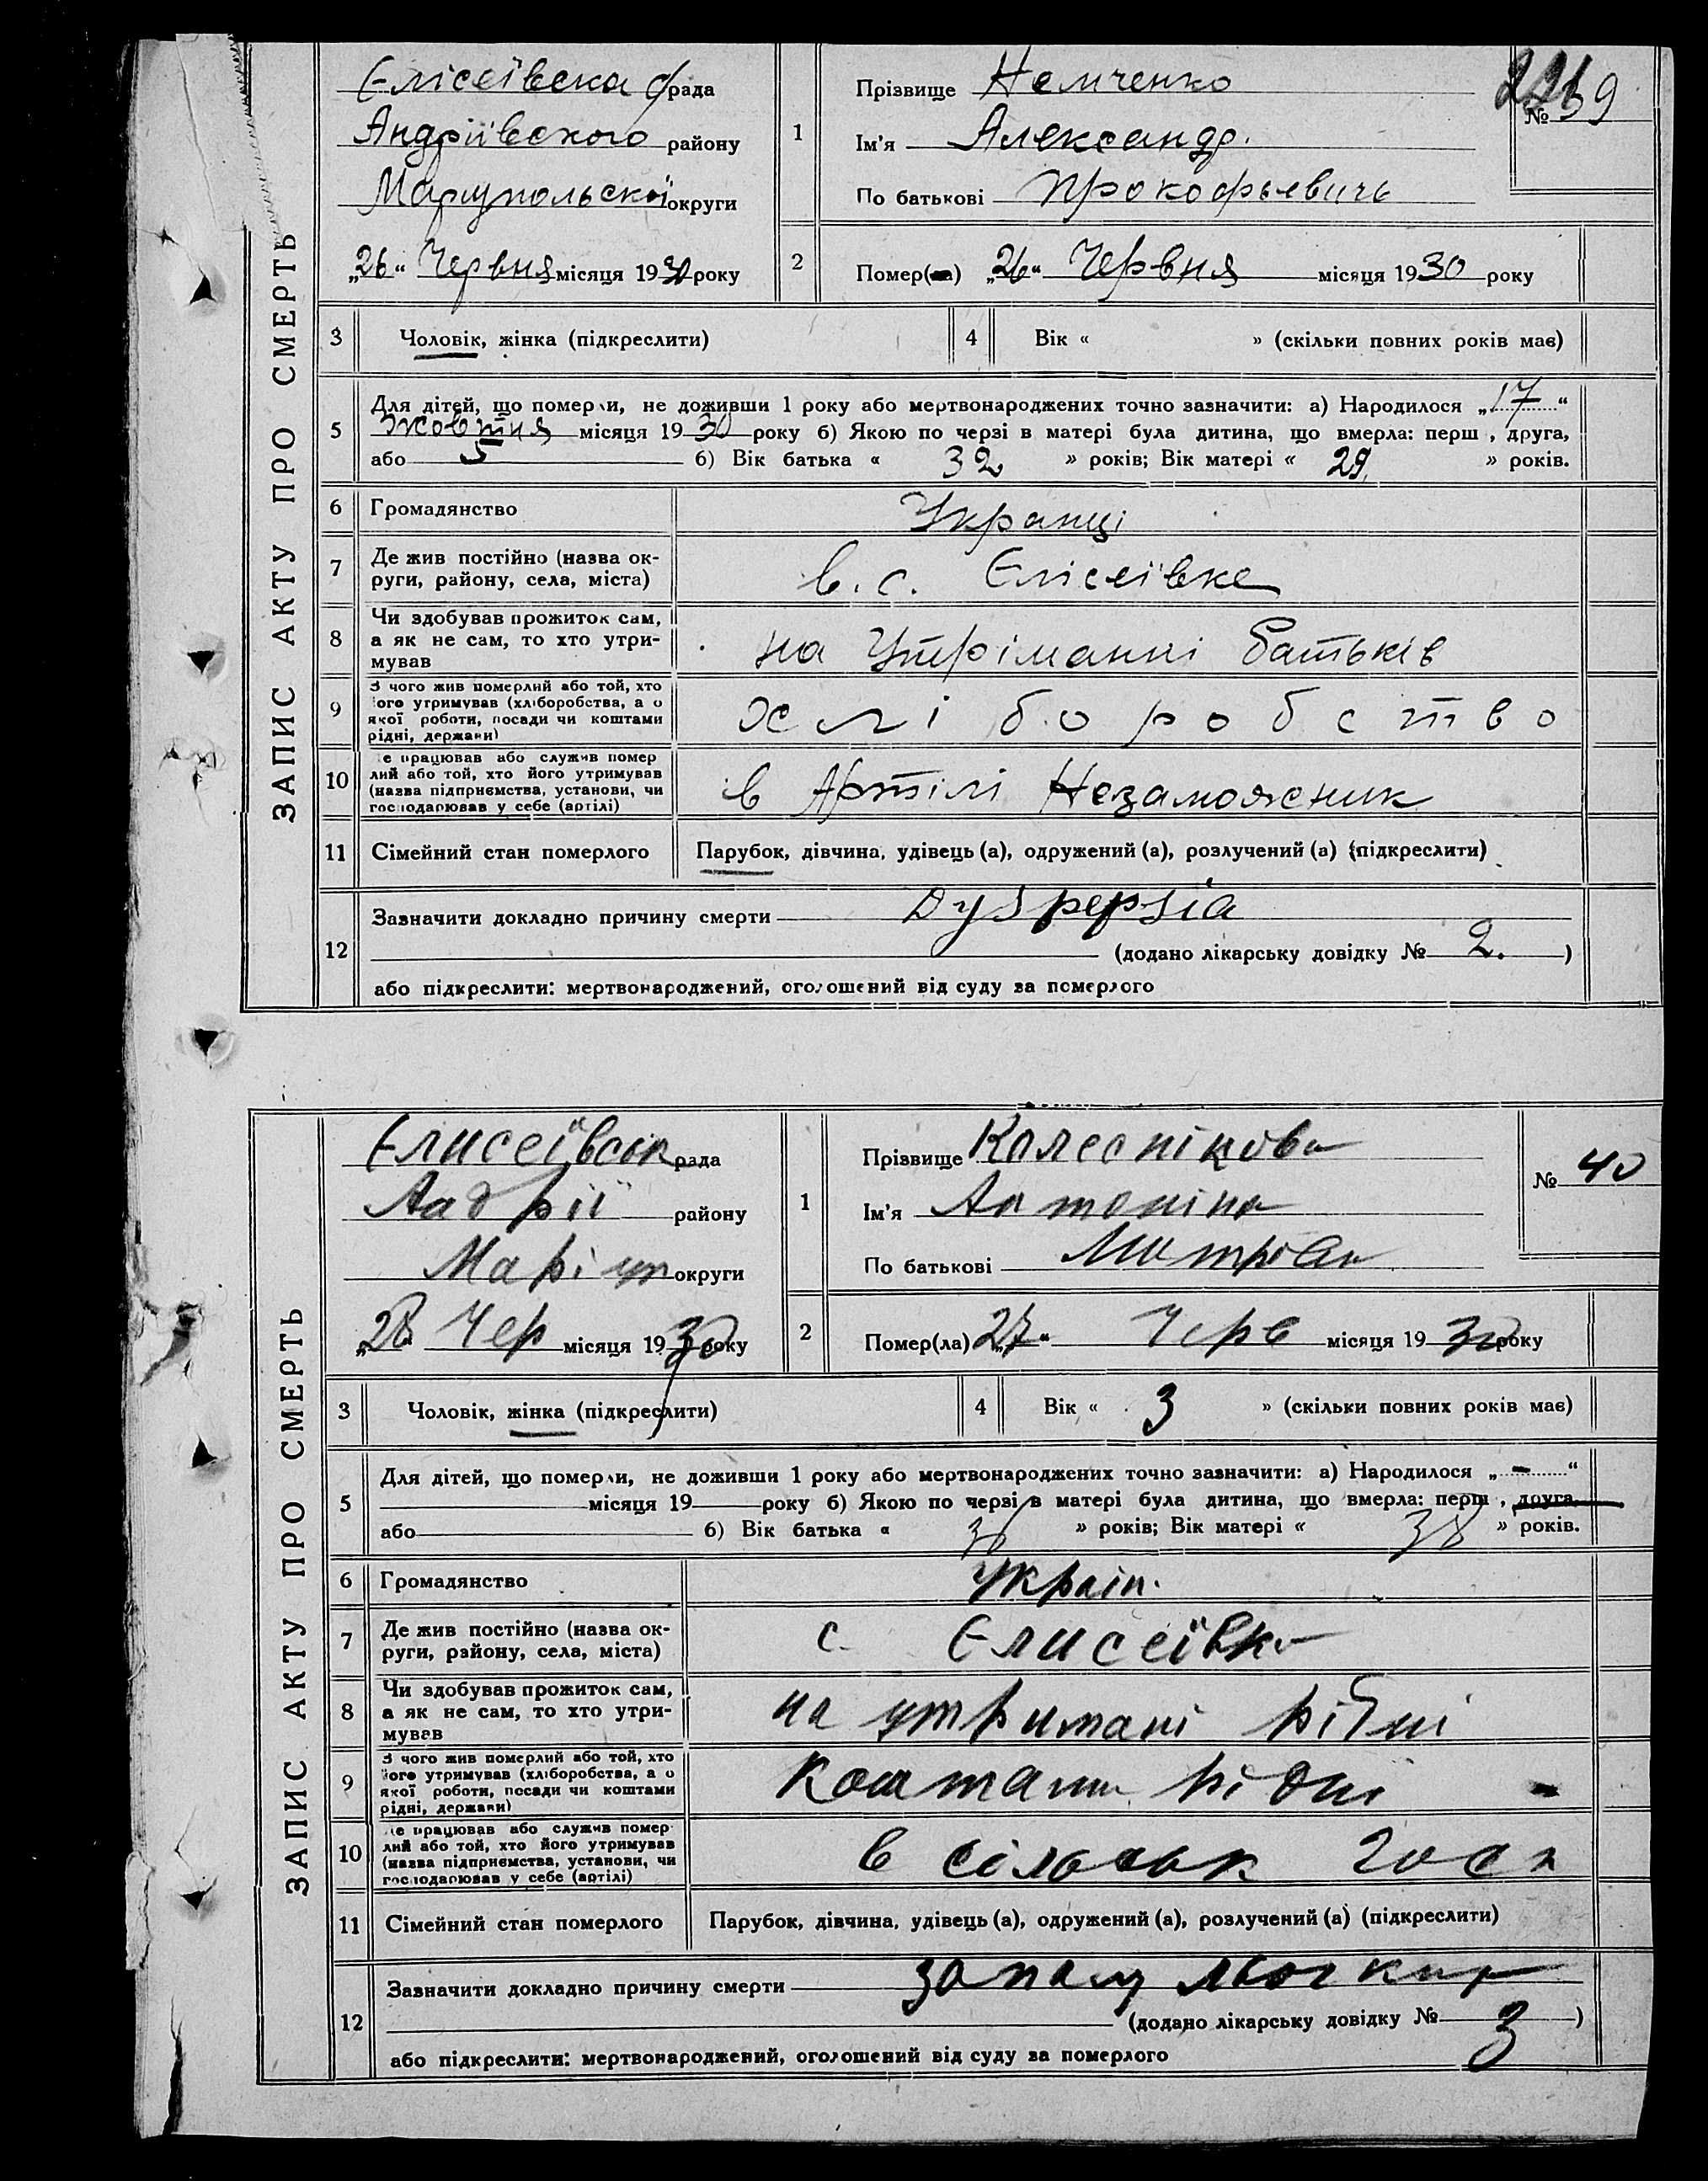 ЗАПИС АКТУ ПРО СМЕРТЬ
Єлісеївська рада
Андріївского району
Маріупольскої округи
„26“ Червня місяця 1930 року
1
Прізвище Немченко
Ім'я Александр.
По батькові Прокофьевичь
№ 39
2
Помер(ла) „26“ Червня місяця 1930 року
3 Чоловік, жінка (підкреслити)
4 Вік « » (скільки повних років має)
5
Для дітей, що померли, не доживши 1 року або мертвонароджених точно зазначити: а) Народилося „17“
Жовтня місяця 1930 року б) Якою по черзі в матері була дитина, що вмерла: перш , друга,
або 5 6) Вік батька « 32 » років; Вік матері « 29 » років.
6 Громадянство Укранці
7 Де жив постійно (назва ок-
руги, району, села, міста) в. с. Єлісеївке
8 Чи здобував прожиток сам,
а як не сам, то хто утри-
мував на Утріманні батьків
9 З чого жив померлий або той, хто
його утримував (хліборобства, а о
якої роботи, посади чи коштами
рідні, держави) хліборобство
10 е працював або служив помер
лий або той, хто його утримував
(назва підприємства, установи, чи
господарював у себе (артілі) в Артілі Незаможник
11 Сімейний стан померлого Парубок, дівчина, удівець (а), одружений (а), розлучений (а) (підкреслити)
12 Зазначити докладно причину смерти Dyspepsia
(додано лікарську довідку № 2. )
або підкреслити: мертвонароджений, оголошений від суду за померлого
ЗАПИС АКТУ ПРО СМЕРТЬ
Єлисеївськ рада
Андрії району
Маріуп округи
„28 Чер місяця 1930 року
1
Прізвище Колеснікова
Ім'я Антоніна
По батькові
№ 40
2
Помер(ла) „27“ Черв місяця 1930 року
3 Чоловік, жінка (підкреслити)
4 Вік « 3 » (скільки повних років має)
5
Для дітей, що померли, не доживши 1 року або мертвонароджених точно зазначити: а) Народилося „ - “
місяця 19 року б) Якою по черзі в матері була дитина, що вмерла: перш , друга,
або 6) Вік батька « » років; Вік матері « 38 » років.
6 Громадянство Украін.
7 Де жив постійно (назва ок-
руги, району, села, міста) с. Єлисеївка
8 Чи здобував прожиток сам,
а як не сам, то хто утри-
мував на утримані рідні
9 З чого жив померлий або той, хто
його утримував (хліборобства, а о
якої роботи, посади чи коштами
рідні, держави) коштами рідні
10 е працював або служив помер
лий або той, хто його утримував
(назва підприємства, установи, чи
господарював у себе (артілі) в сільськ госп
11 Сімейний стан померлого Парубок, дівчина, удівець (а), одружений (а), розлучений (а) (підкреслити)
12 Зазначити докладно причину смерти запал
(додано лікарську довідку № 3 )
або підкреслити: мертвонароджений, оголошений від суду за померлого